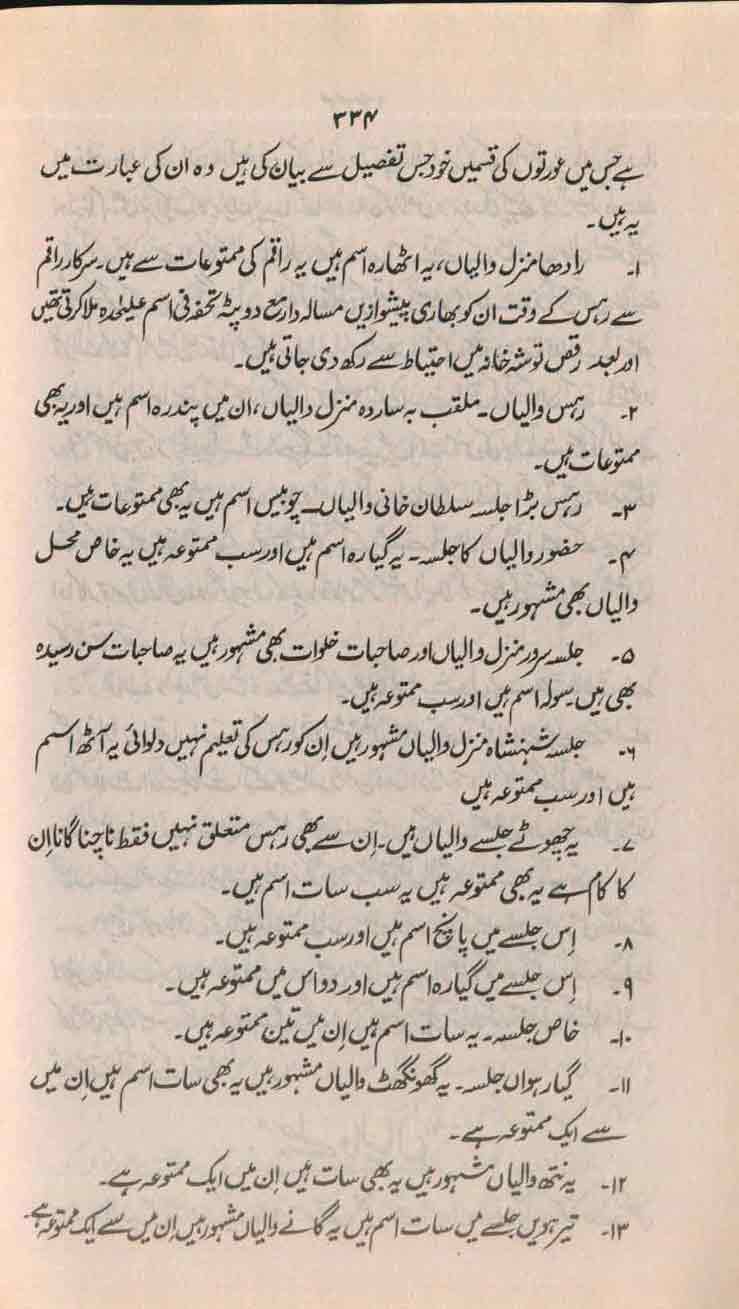 ۳۳۴
ہے جس میں عورتوں کی قسمیں خود جس تفصیل سے بیان کی ہیں وہ ان کی عبارت میں
یہ ہیں۔
۱۔ رادھا منزل والیاں، یہ اٹھارہ اسم ہیں یہ راقم کی ممتوعات سے ہیں۔ سرکار راقم
سے رہس کے وقت ان کو بھاری پیشوازیں مسالہ دار مع دوپٹہ تحفہ فی اسم علیٰحدہ ملا کرتی تھیں
اور بعد رقص توشہ خانہ میں احتیاط سے رکھ دی جاتی ہیں۔
۲۔ رہس والیاں۔ ملقب بہ ساردہ منزل والیاں، ان میں پندرہ اسم ہیں اور یہ بھی
ممتوعات ہیں۔
۳۔ رہس بڑا جلسہ سلطان خانی والیاں۔ چوبیس اسم ہیں یہ بھی ممتوعات ہیں۔
۴۔ حضور والیاں کا جلسہ۔ یہ گیارہ اسم ہیں اور سب ممتوعہ ہیں یہ خاص محل
والیاں بھی مشہور ہیں۔
۵۔ جلسہ سرور منزل والیاں اور صاحبات خلوات بھی مشہور ہیں یہ صاحبات سن رسیدہ
بھی ہیں۔ سولہ اسم ہیں اور سب ممتوعہ ہیں۔
۶۔ جلسہ شہنشاہ منزل والیاں مشہور ہیں اِن کو رہس کی تعلیم نہیں دلوائی یہ آٹھ اسم
ہیں اور سب ممتوعہ ہیں
۷۔ یہ چھوٹے جلسے والیاں ہیں۔ اِن سے بھی رہس متعلق نہیں فقط ناچنا گانا اِن
کا کام ہے یہ بھی ممتوعہ ہیں یہ سب سات اسم ہیں۔
۸۔ اِس جلسے میں پانچ اسم ہیں اور سب ممتوعہ ہیں۔
۹۔ اِس جلسے میں گیارہ اسم ہیں اور دو اس میں ممتوعہ ہیں۔
۱۰۔ خاص جلسہ۔ یہ سات اسم ہیں اِن میں تین ممتوعہ ہیں۔
۱۱۔ گیارہواں جلسہ۔ یہ گھونگھٹ والیاں مشہور ہیں یہ بھی سات اسم ہیں اِن میں
سے ایک ممتوعہ ہے۔
۱۲۔ یہ نتھ والیاں مشہور ہیں یہ بھی سات ہیں اِن میں ایک ممتوعہ ہے۔
۱۳۔ تیرہویں جلسے میں سات اسم ہیں یہ گانے والیاں مشہور ہیں اِن میں سے ایک ممتوعہ ہے۔